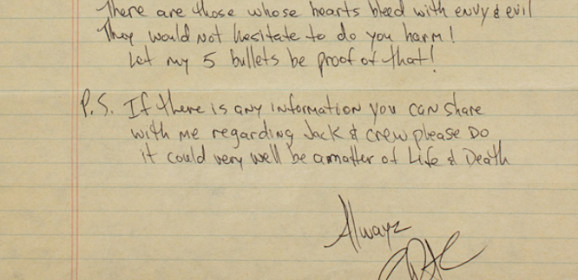 There are those whose hearts bleed with envy & evil
They would not hesitate to do you harm!
Let my 5 bullets be proof of that!
P.S. If there is any information you can share
with me regarding Jack & crew please Do
it could very well be a matter of Life & Death
Always